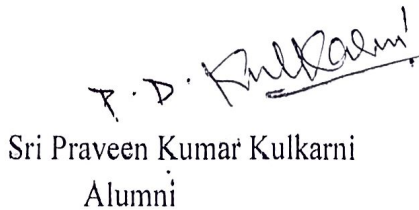 P. D. Kulkarni
Sri Praveen Kumar Kulkarni
Alumni